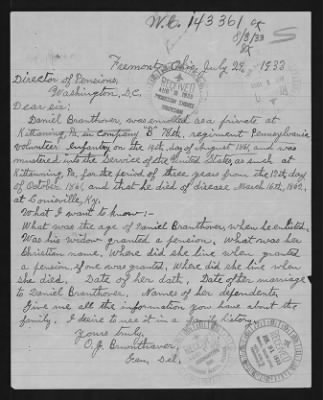 W.C. 143361
8/3/33
Fremont, Ohio, July 29, 1933
Director of Pensions,
Washington, D.C.
Dear sir:
Daniel Branthover, was enrolled as a private at
Kittanning, Pa, in Company "B" 78th, regiment Pennsylvania
Volunteer Infantry, on the 14th, day of August 1861, and was
mustered into the Service of the United States, as such at
Kittanning, Pa, for the period of three years from the 12th, day
of October 1861, and that he died of disease March 16th, 1862,
at Louisville, Ky.
What I want to know:-
What was the age of Daniel Branthover, when he enlisted.
Was his widow granted a pension. What was her
Christian name. Where did she live when granted
a pension, if one was granted. Where did she live when
she died. Date of her death. Date of her marriage
to Daniel Branthover. Names of her dependents.
Give me all the information you have about the
family. I desire to use it in a family history.
Yours truly,
O. J. Brunthaver,
Gen. Del.
RECEIVED